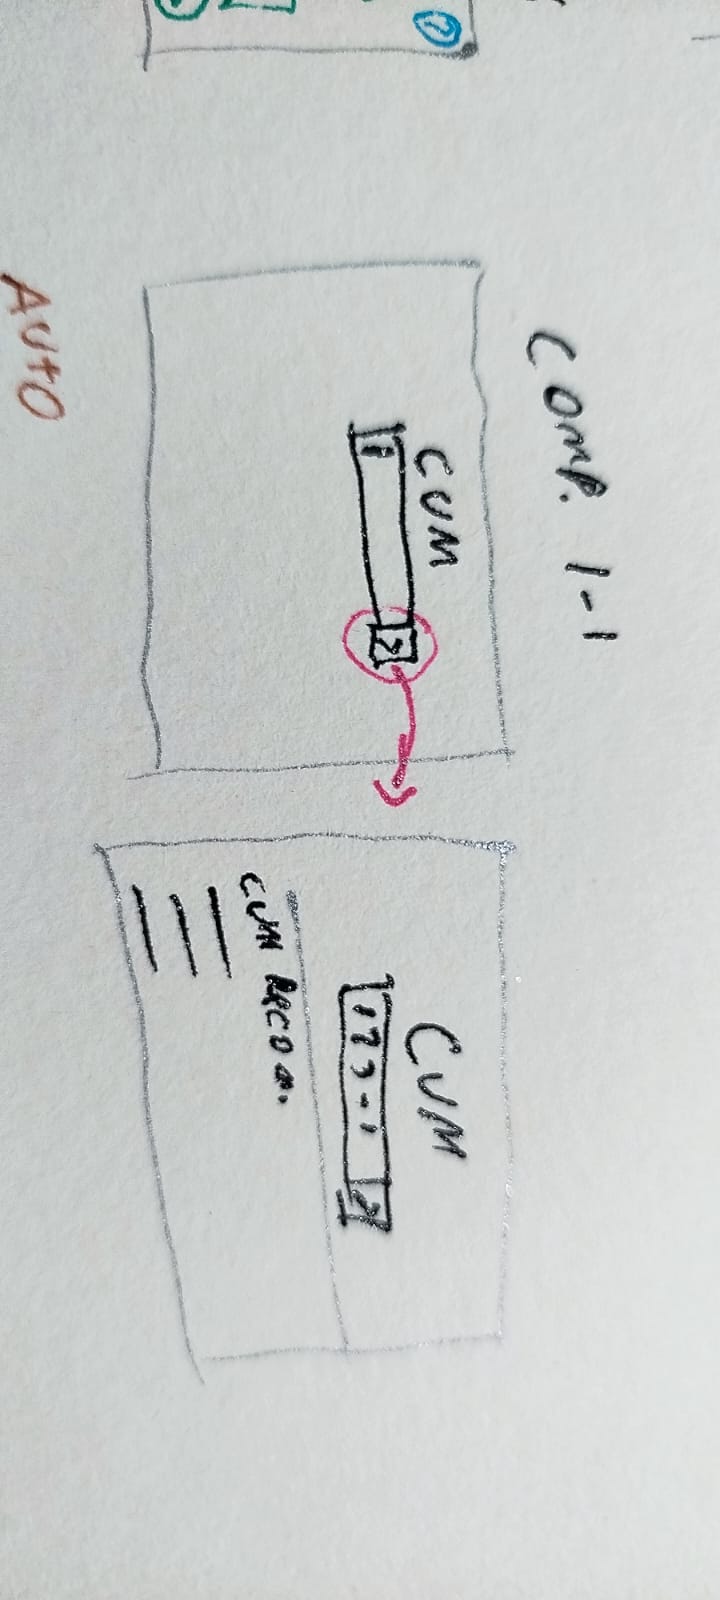 COMP. 1-1
CUM
CUM
173-1
CUM RECOM.
AUTO
?